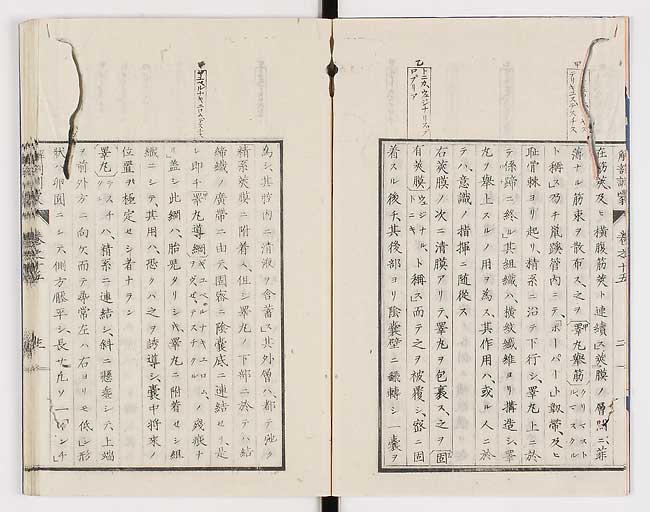 解剖訓蒙 巻之十五
甲
乙
トニカ、ウァジナリス、プロプリア
在筋莢及ヒ横腹筋莢ト連續シ莢膜ノ層間ニ菲
薄ナル筋束ヲ散布ス之ヲ睾丸擧筋クリマストル、マスクル
ト稱ス乃チ鼠蹊管内ニテ、ポーパー、靱帶及ヒ
耻骨棘ヨリ起リ、精系ニ沿テ下行シ、睾丸上ニ於
テ係蹄ニ終ル其組織ハ横紋纖維ヨリ搆造シ、睾
丸ヲ擧上スルノ用ヲ為ス、其作用ハ、或ル人ニ於
テハ、意識ノ指揮ニ随従ス
右莢膜ノ次ニ漿膜アリテ、睾丸ヲ包裹ス之ヲ固
有莢膜ウァジナル、トニキト稱ス而テ之ヲ被覆シ、密ニ固
着スル後チ其後部ヨリ陰嚢壁ニ飜轉シ一嚢ヲ
為シ、其腔内ニ漿液ヲ含蓄ス其外層ハ、都テ弛ク
精系莢膜ニ附着ス、但シ睾丸ノ下部ニ於テハ結
締織ノ廣帶ニ由テ固密ニ陰嚢底ニ連結セリ、是
レ即チ睾丸導綱ノ殘痕ナ
リ蓋シ此綱ハ、胎兒タリシ時睾丸ニ附着セシ組
織ニシテ、其用ハ、恐クハ之ヲ誘導シ、嚢中將來ノ
位置ヲ極定セシ者ナラン
睾丸テスチスハ、精系ニ連結シ、斜ニ懸垂シテ、上端
ヲ前外方ニ向ケ而テ尋常左ハ右ヨリモ低シ形
狀ハ卵圓ニシテ側方膨平シ、長サ凡ソ一